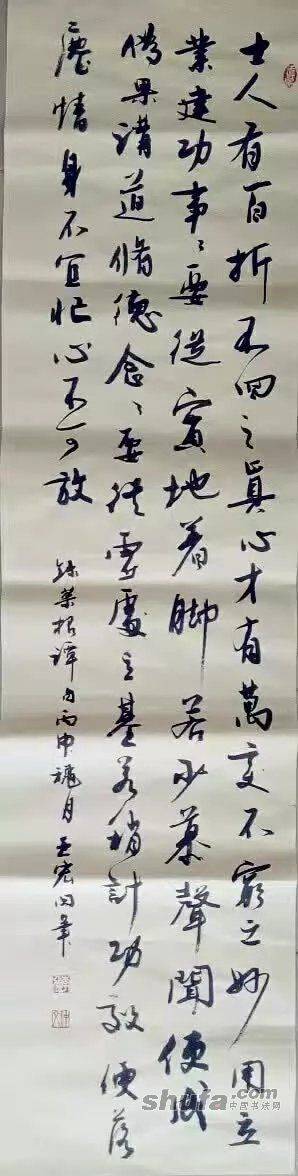 士人有百折不回之真心才有萬变不窮之妙用立
業建功事〻要從實地着脚若少慕聲聞便成
偽果講道脩德念〻要從虚處立基若稍計功效便落
塵情身不宜忙心不可放
錄菜根譚句丙申
shufa.com
中国书法网